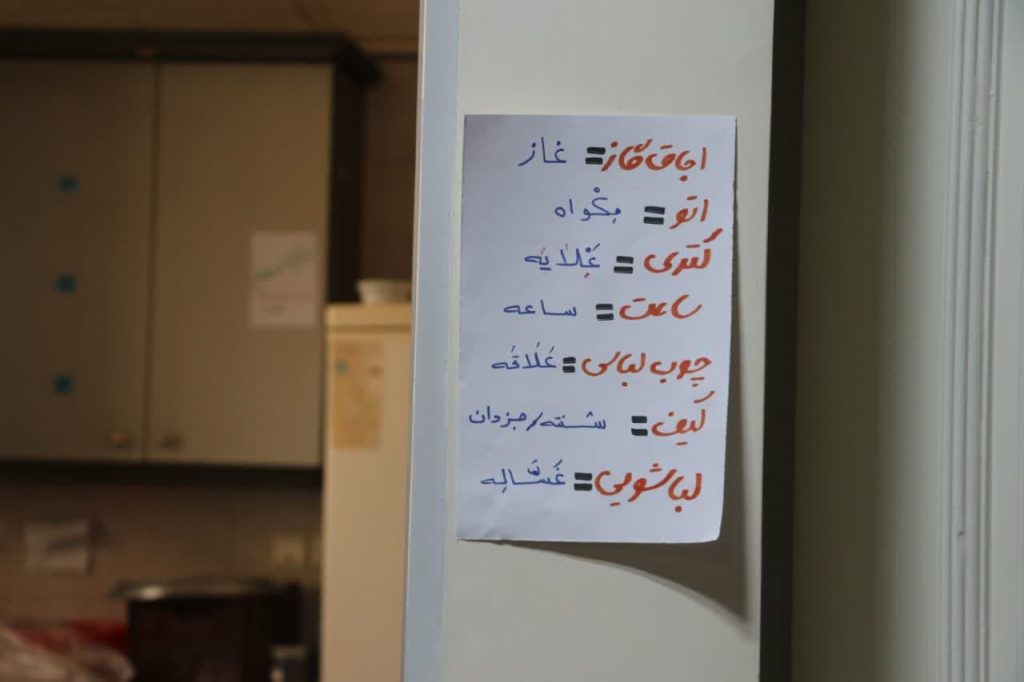 اجاق گاز = غاز
اتو = مِکْواه
کتری = غَلّایه
ساعت = ساعه
چوب لباسی = عُلاقه
کیف = شنته/جزدان
لباسشویی = غَسّالِه